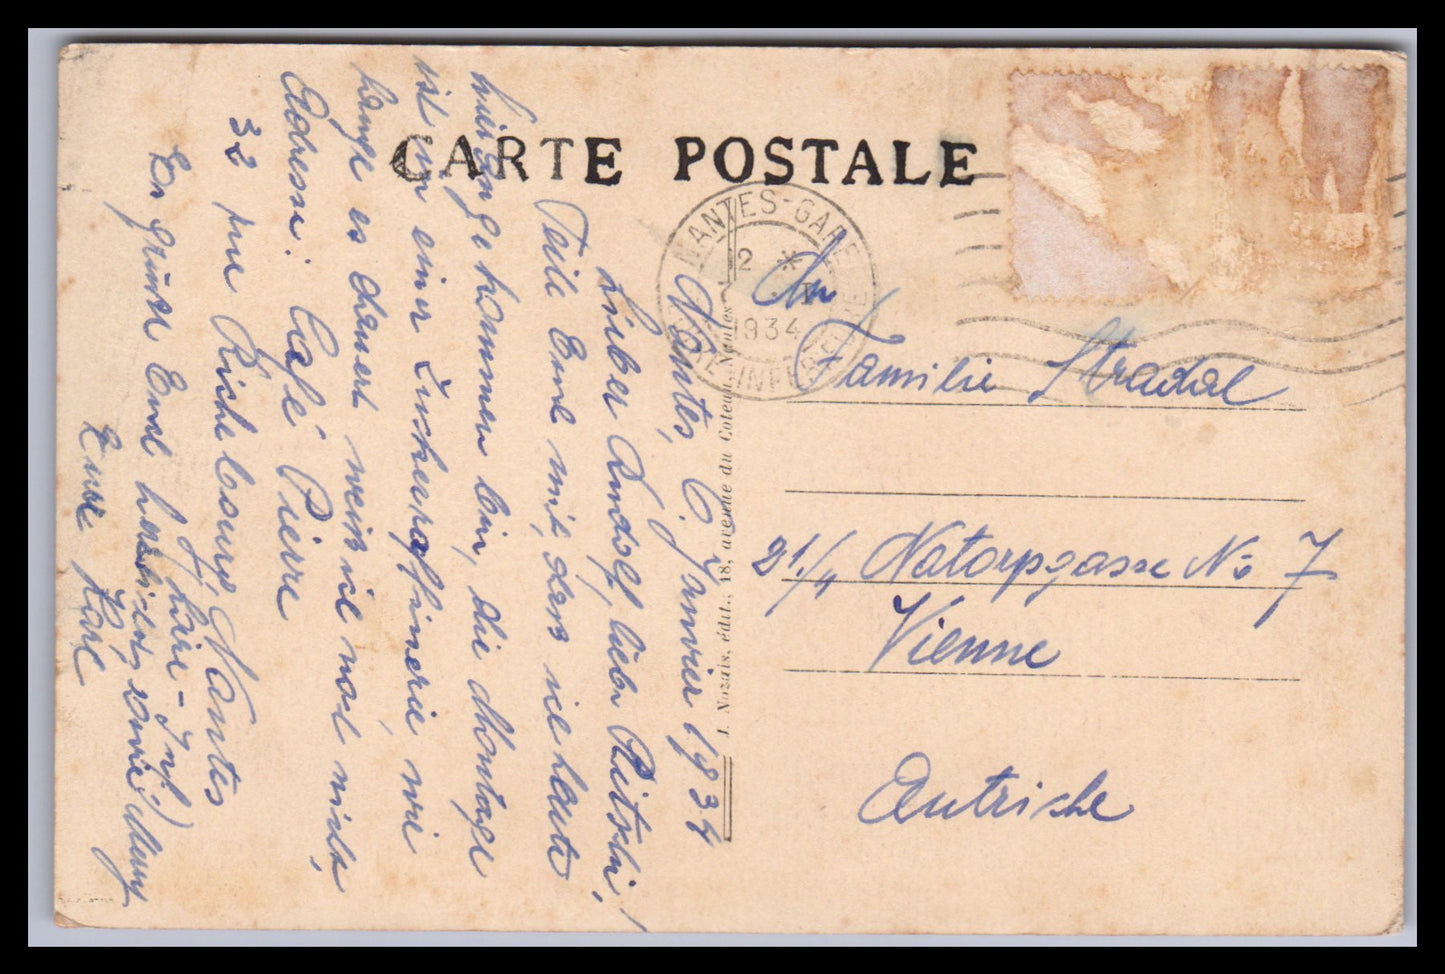 CARTE POSTALE
NANTES-GARE
12 *
I
1934
LOIRE INFÉRIEURE
J. Nozais, édit., 18, avenue du Coteau, Nantes
An
Familie Stradal
21/4 Natorpgasse No 7
Vienne
Autriche
Nantes, 6. Janvier 1934
Lieber Rudolf, liebe Pitschi!
Teile Euch mit, dass ich heute
hier angekommen bin, die Montage
ist in einer Zuckerraffinerie, wie
lange es dauert weiss ich noch nicht,
Adresse: Café Pierre
32 rue Riche bourg, Nantes
Loire-Inf)
Es grüsst Euch herzlichst, sowie
Euer Karl